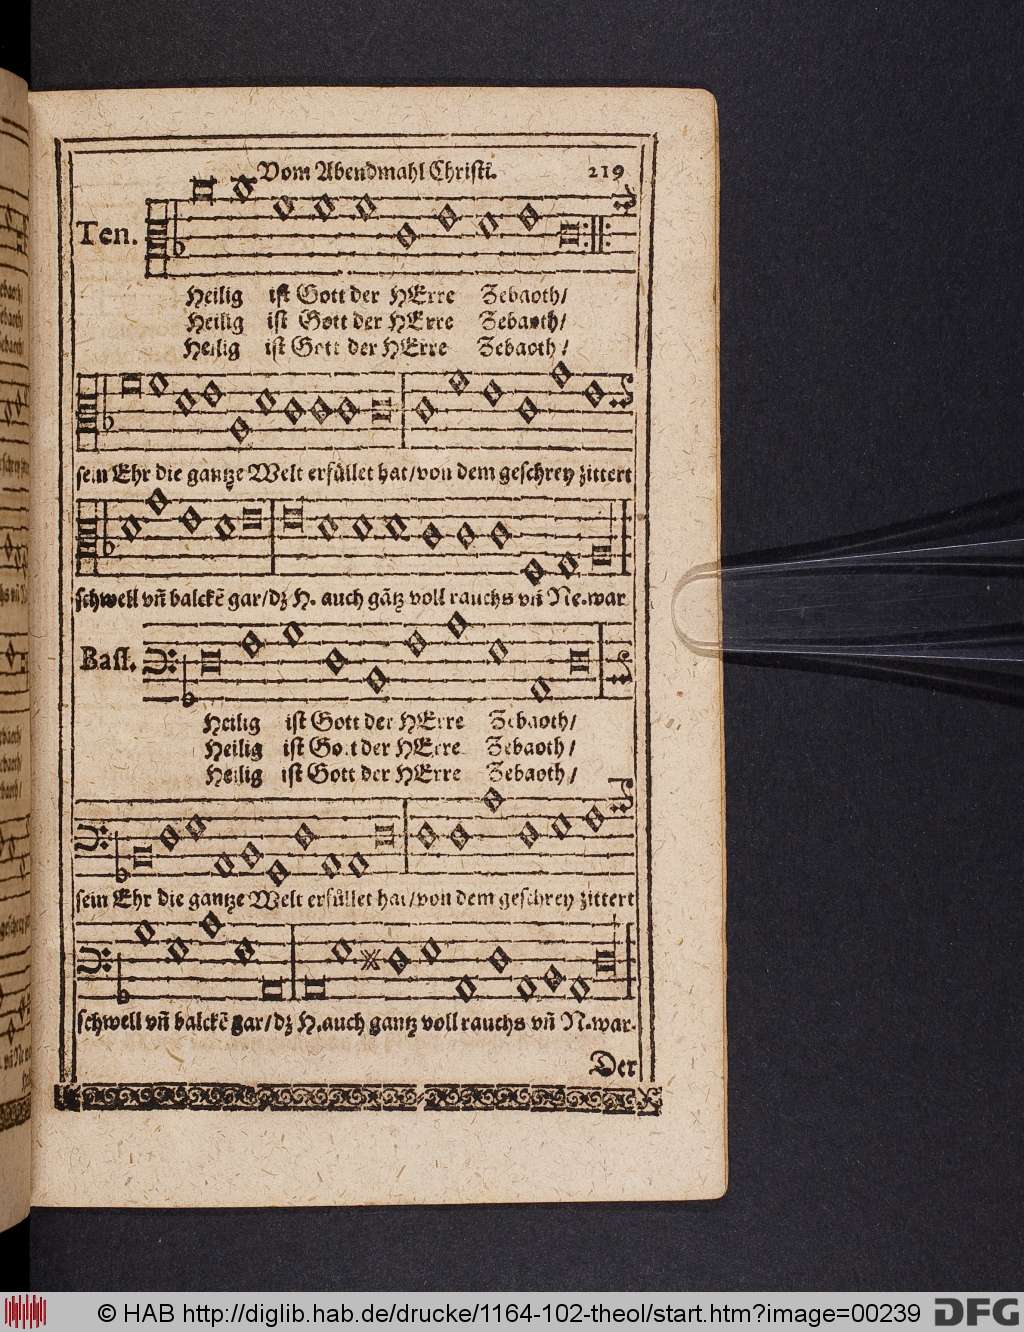 Vom Abendmahl Christi. 219
Ten.
Heilig ist Gott der HErre Zebaoth/
Heilig ist Gott der HErre Zebaoth/
Heilig ist Gott der HErre Zebaoth/
sein Ehr die gantze Welt erfüllet hat/von dem geschrey zittert
schwell vñ balckẽ gar/dz H. auch gãtz voll rauchs vñ Ne.war
Bass.
Heilig ist Gott der HErre Zebaoth/
Heilig ist Gott der HErre Zebaoth/
Heilig ist Gott der HErre Zebaoth/
sein Ehr die gantze Welt erfüllet hat/von dem geschrey zittert
schwell vñ balckẽ gar/dz H.auch gantz voll rauchs vñ N.war.
Der
© HAB http://diglib.hab.de/drucke/1164-102-theol/start.htm?image=00239 DFG